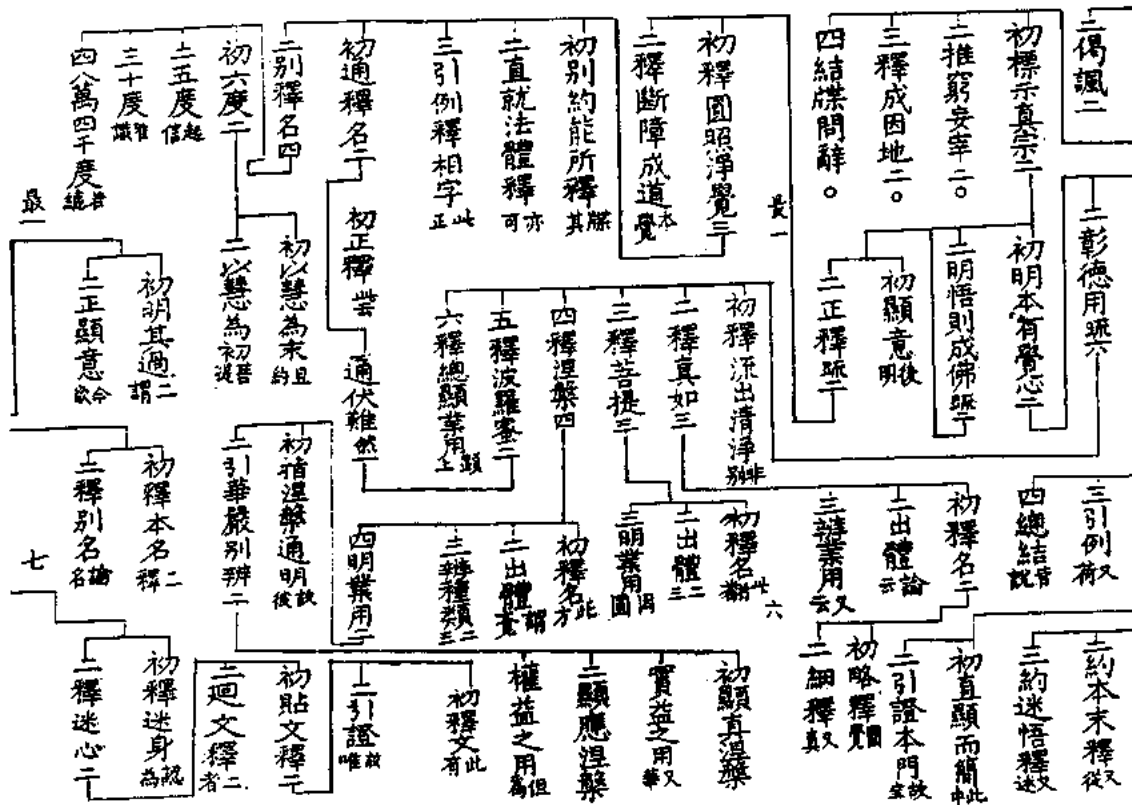 二偈諷二
初標示真宗二
二推窮妄宰二○
三釋成因地二○
四結牒問辭○
初釋圓照淨覺三
二釋斷障成道本覺
初別約能所釋牒其
二直就法體釋亦可
三引例釋相字此正
初通釋名二
二別釋名四
初六度二
二五度起信
三十度唯識
四八萬四千度
最一
二彰德用疏六
初明本有覺心二
二明悟則成佛疏二
初顯意後明
二正釋疏二
最一
初釋流出清淨非別
二釋真如三
三釋菩提三
四釋涅槃四
五釋波羅蜜二
六釋總顯業用題上
初正釋
二通伏難然
初以慧為末且約
二以慧為初菩提
初明其過二謂
二正顯意今欲
三引例又荷
四總結皆說
初釋名二
二出體論云
三辨業用又云
六
初釋名此翻
二出體二三
三明業用圓
初釋名此方
二出體謂
三辨種類二三
四明業用二
初指涅槃通明故後
二引華嚴別辨二
初釋本名二釋
二釋別名論名
七
二約本末釋又從
三約迷悟釋又迷
初直顯而簡此中
二引證本門故
初略釋圓覺
二細釋又真
初顯真涅槃
實益之用又華
二顯應涅槃
權益之用但為
初釋文此有
二引證故唯
初貼文釋二
二迴文釋二者
初釋迷身認為
二釋迷心二